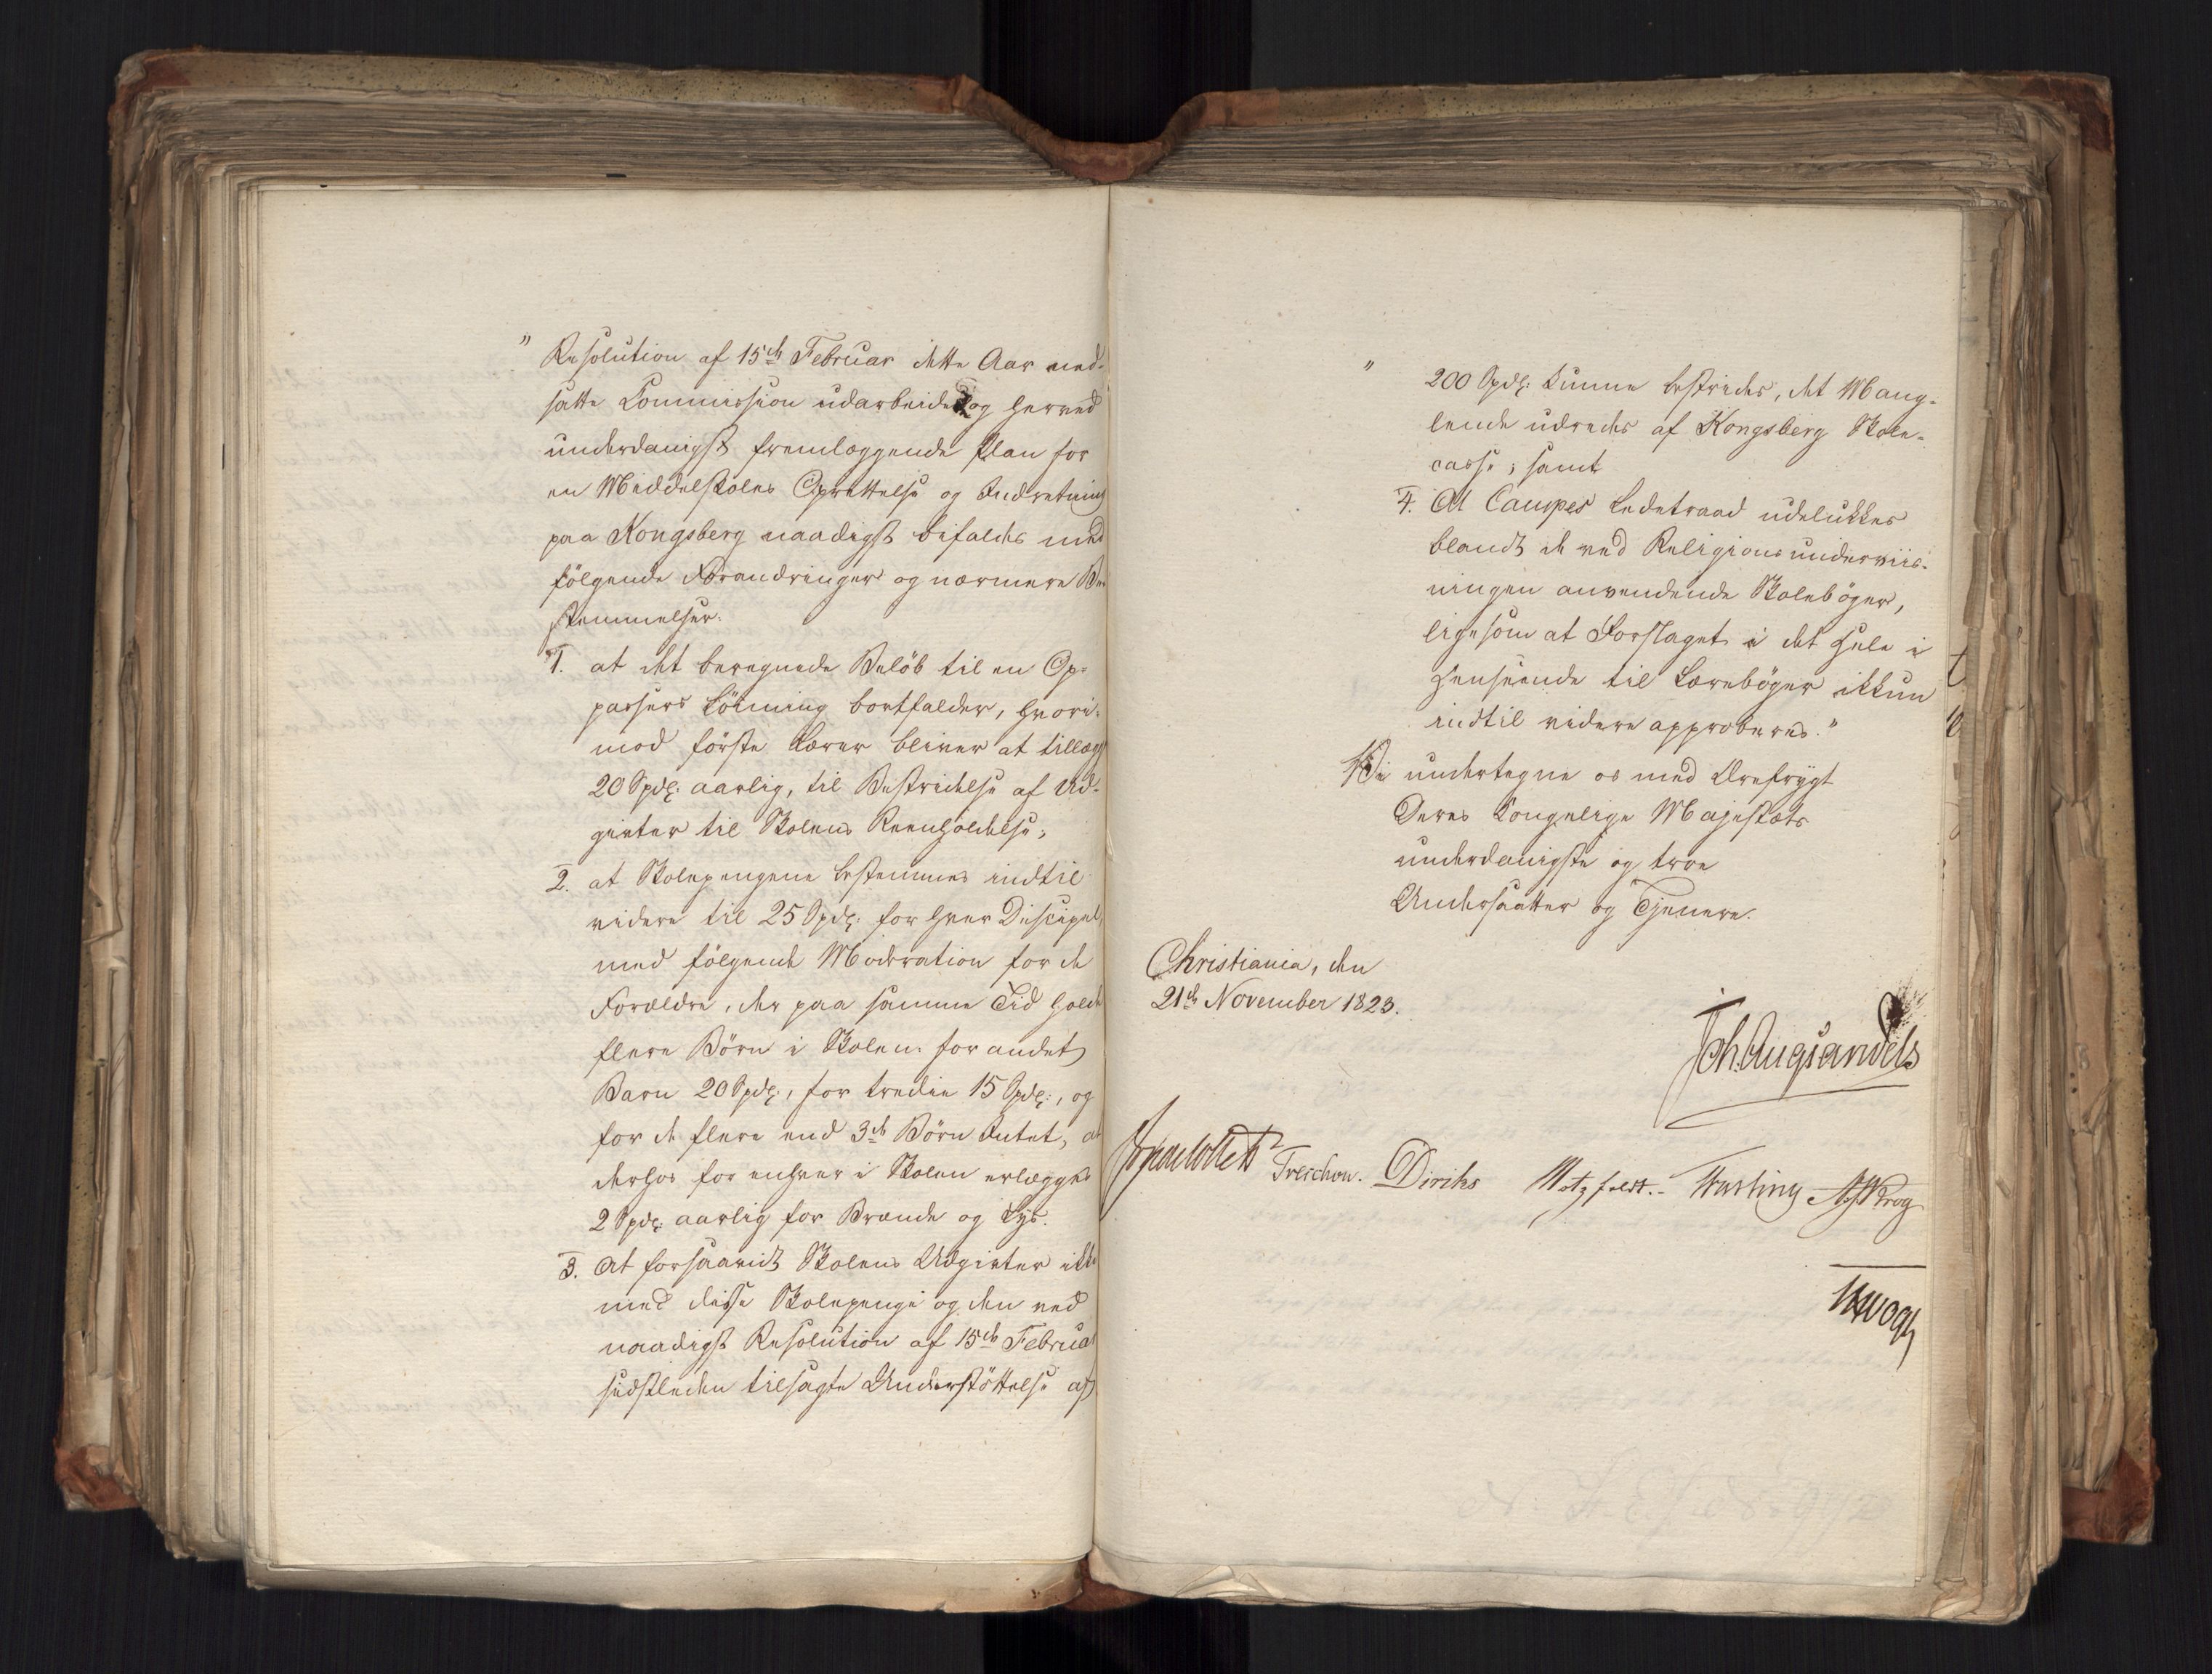 " Resolution af 15de Februar dette Aar ned-
satte Commission udarbeidet og herved
underdanigst fremlæggende Plan for
en Middelskoles Oprettelse og Indretning
paa Kongsberg naadigst bifaldes med
følgende Forandringer og nærmere Be-
stemmelser:
1. at det beregnede Beløb til en Op-
passers Lönning bortfalder, hvori-
mod förste Lærer bliver at tillægge
20 Spdlr: aarlig, til Bestridelse af Ud-
givter til Skolens Reenholdelse;
2. at Skolepengene bestemmes indtil
videre til 25 Spdlr: for hver Discipel,
med fölgende Moderation for de
Forældre, der paa samme Tid holde
flere Börn i Skolen: for andet
Barn 20 Spdlr:, for tredie 15 Spdlr:, og
for de flere end 3de Börn Intet, at
derhos for enhver i Skolen erlægges
2 Spdlr: aarlig for Brænde og Lys.
3. At forsaavidt Skolens Udgivter ikke
med disse Skolepenge og den ved
naadigst Resolution af 15de Februar
sidstleden tilsagte Understöttelse af
" 200 Spdlr: kunne bestrides, det Mang-
lende udredes af Kongsberg Skole-
casse; samt
4. At Campes Ledetraad udelukkes
blandt de ved Religionsunderviis-
ningen anvendende Skoleböger,
ligesom at Forslaget i det Hele i
Henseende til Læreböger ikkun
indtil videre approberes."
Vi undertegne os med Ærefrygt
Deres Kongelige Majestæts
underdanigste og troe
Undersaatter og Tjenere.
Christiania, den
21de November 1823.
Joh. Aug Sandels
Treschow. Diriks Motzfeldt.- Fasting Krog
Vogt